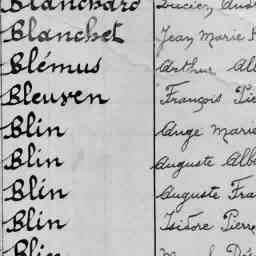 Blanchard Lucien
Blanchet Jean Marie
Blémus Arthur
Bleuven François
Blin Ange Marie
Blin Auguste
Blin Auguste
Blin Isidore Pierre
Blin